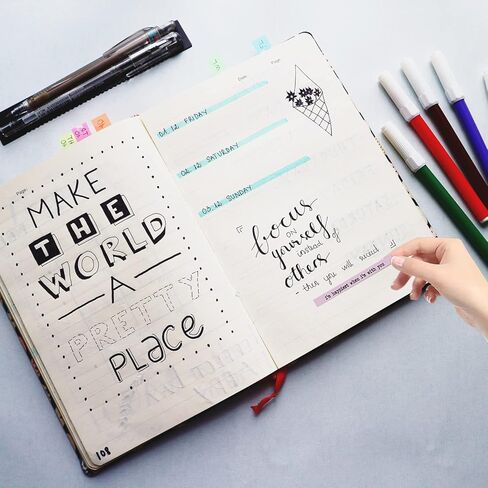 Page:
MAKE
THE
WORLD
A
PRETTY
PLACE
108
Date:
Page:
01.12 FRIDAY
02.12 SATURDAY
03.12 SUNDAY
focus
on
yourself
instead of
others
then you will succeed
i'm happiest when i'm with you